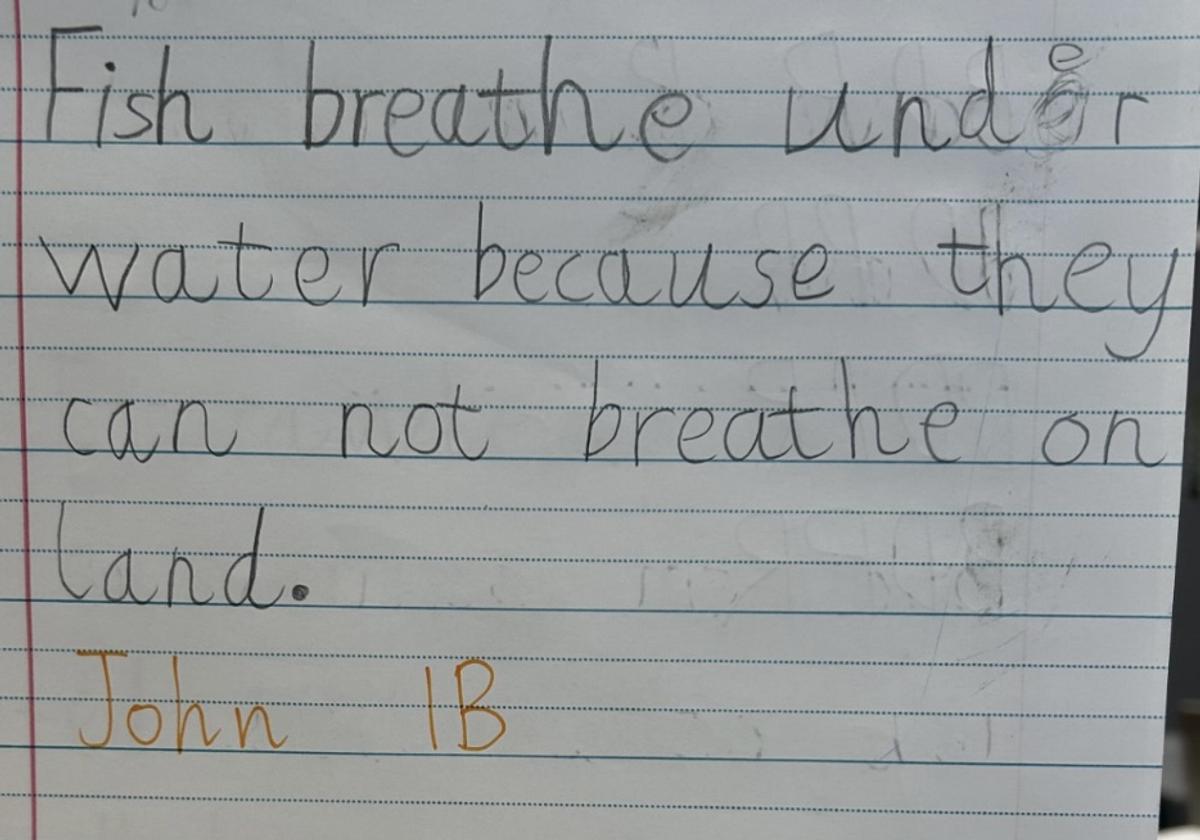 Fish breathe under
water because they
can not breathe on
land.
John 1B